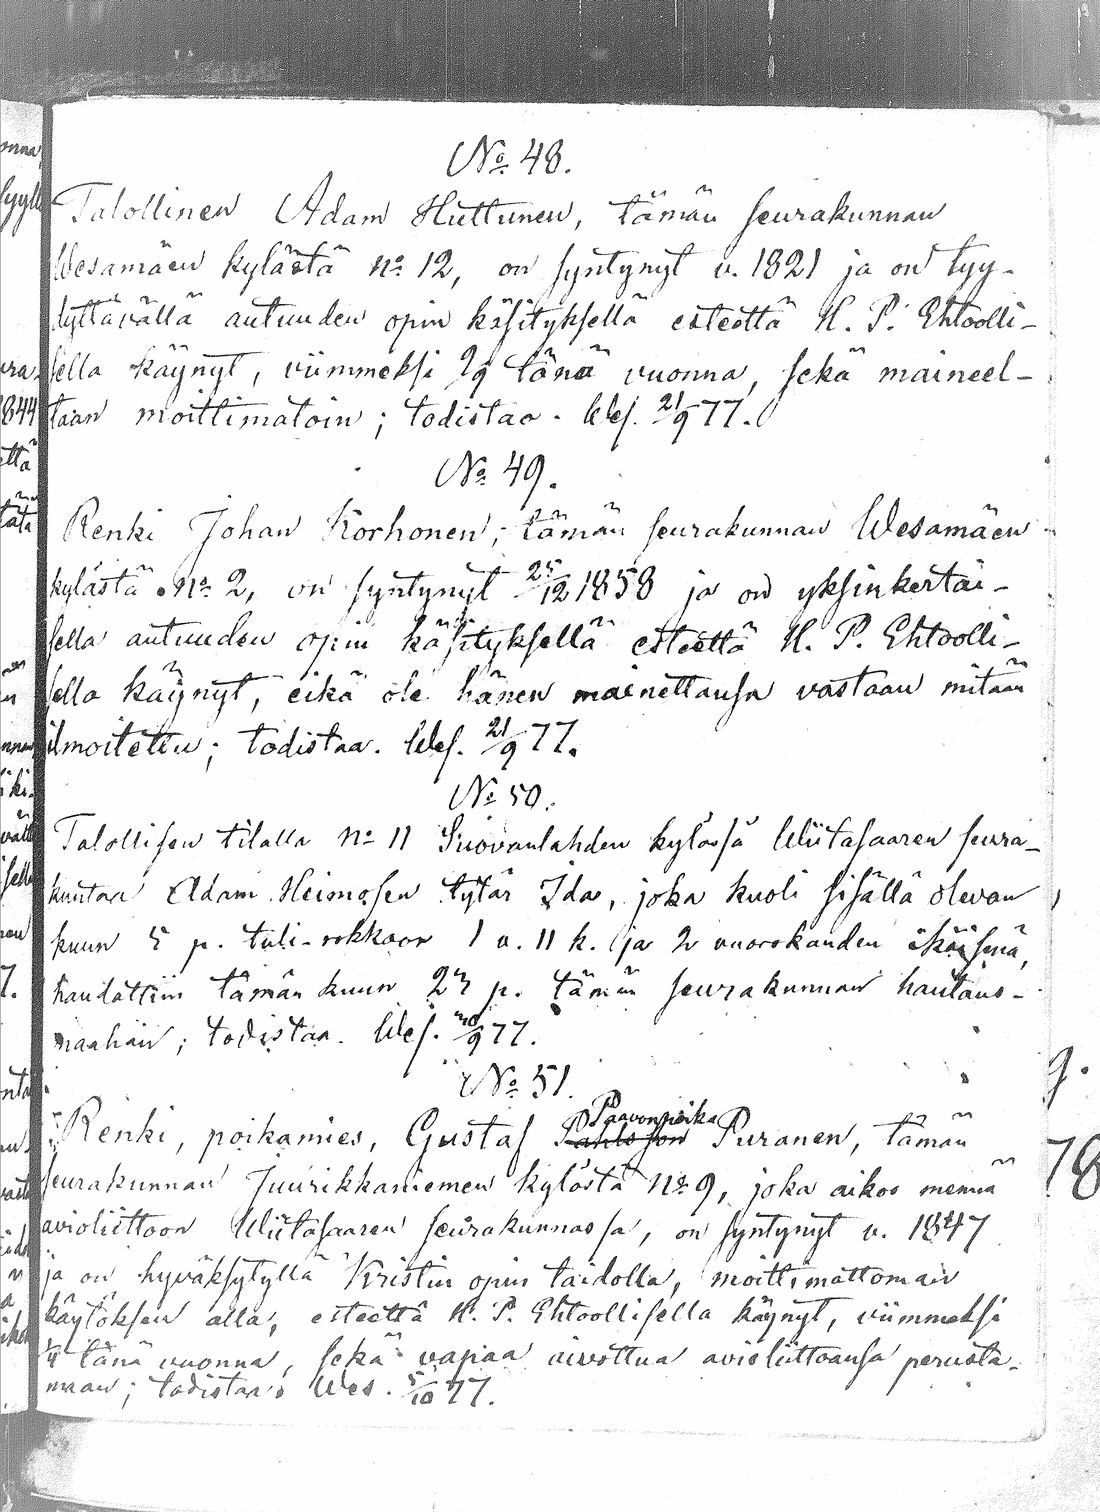 No 48.
Talollinen Adam Huttunen, tämän seurakunnan
Wesamäen kylästä No 12, on syntynyt v. 1821 ja on tyy-
dyttävällä autuuden opin käsityksellä esteettä H. P. Ehtoolli-
sella käynyt, viimmeksi 2/9 tänä vuonna, sekä maineel-
taan moittimatoin; todistaa. Wes. 21/9 77.
No 49.
Renki Johan Korhonen, tämän seurakunnan Wesamäen
kylästä No 2, on syntynyt 25/12 1858 ja on yksinkertai-
sella autuuden opin käsityksellä esteettä H. P. Ehtoolli-
sella käynyt, eikä ole hänen mainettansa vastaan mitään
ilmoitettu; todistaa. Wes. 21/9 77.
No 50.
Talollisen tilalla No 11 Suovanlahden kylässä Wiitasaaren seura-
kuntaa Adam Heimosen tytär Ida, joka kuoli sisällä olevan
kuun 5 p. tuli-rokkoon 1 v. 11 k. ja 2 vuorokauden ikäisenä,
haudattiin tämän kuun 23 p. tämän seurakunnan hautaus-
maahan; todistaa. Wes. 30/9 77.
No 51.
Renki, poikamies, Gustaf Paavonpoika Puranen, tämän
seurakunnan Juurikkaniemen kylästä No 9, joka aikoo mennä
avioliittoon Wiitasaaren seurakunnassa, on syntynyt v. 1847
ja on hyväksytyllä Kristin opin taidolla, moittimattoman
käytöksen alla, esteettä H. P. Ehtoollisella käynyt, viimmeksi
tänä vuonna, sekä vapaa aivottua avioliittoansa perusta-
maan; todistaa: Wes. 5/10 77.